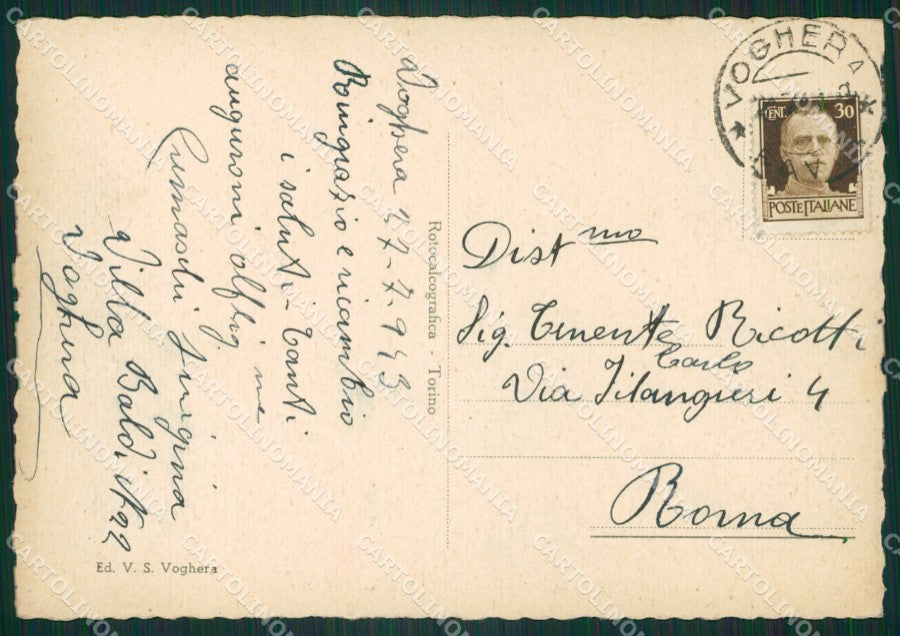 Voghera 27-7-943
Ringrazio e ricambio
i saluti - tanti
auguroni
Luigina
Villa Baldi N 22
Voghera
Rotocalcografica - Torino
Ed. V. S. Voghera
VOGHERA
CENT. 30
POSTE ITALIANE
Dist mo
Sig. Tenente Ricotti
Carlo
Via Filangieri 4
Roma
CARTOLINOMANIA